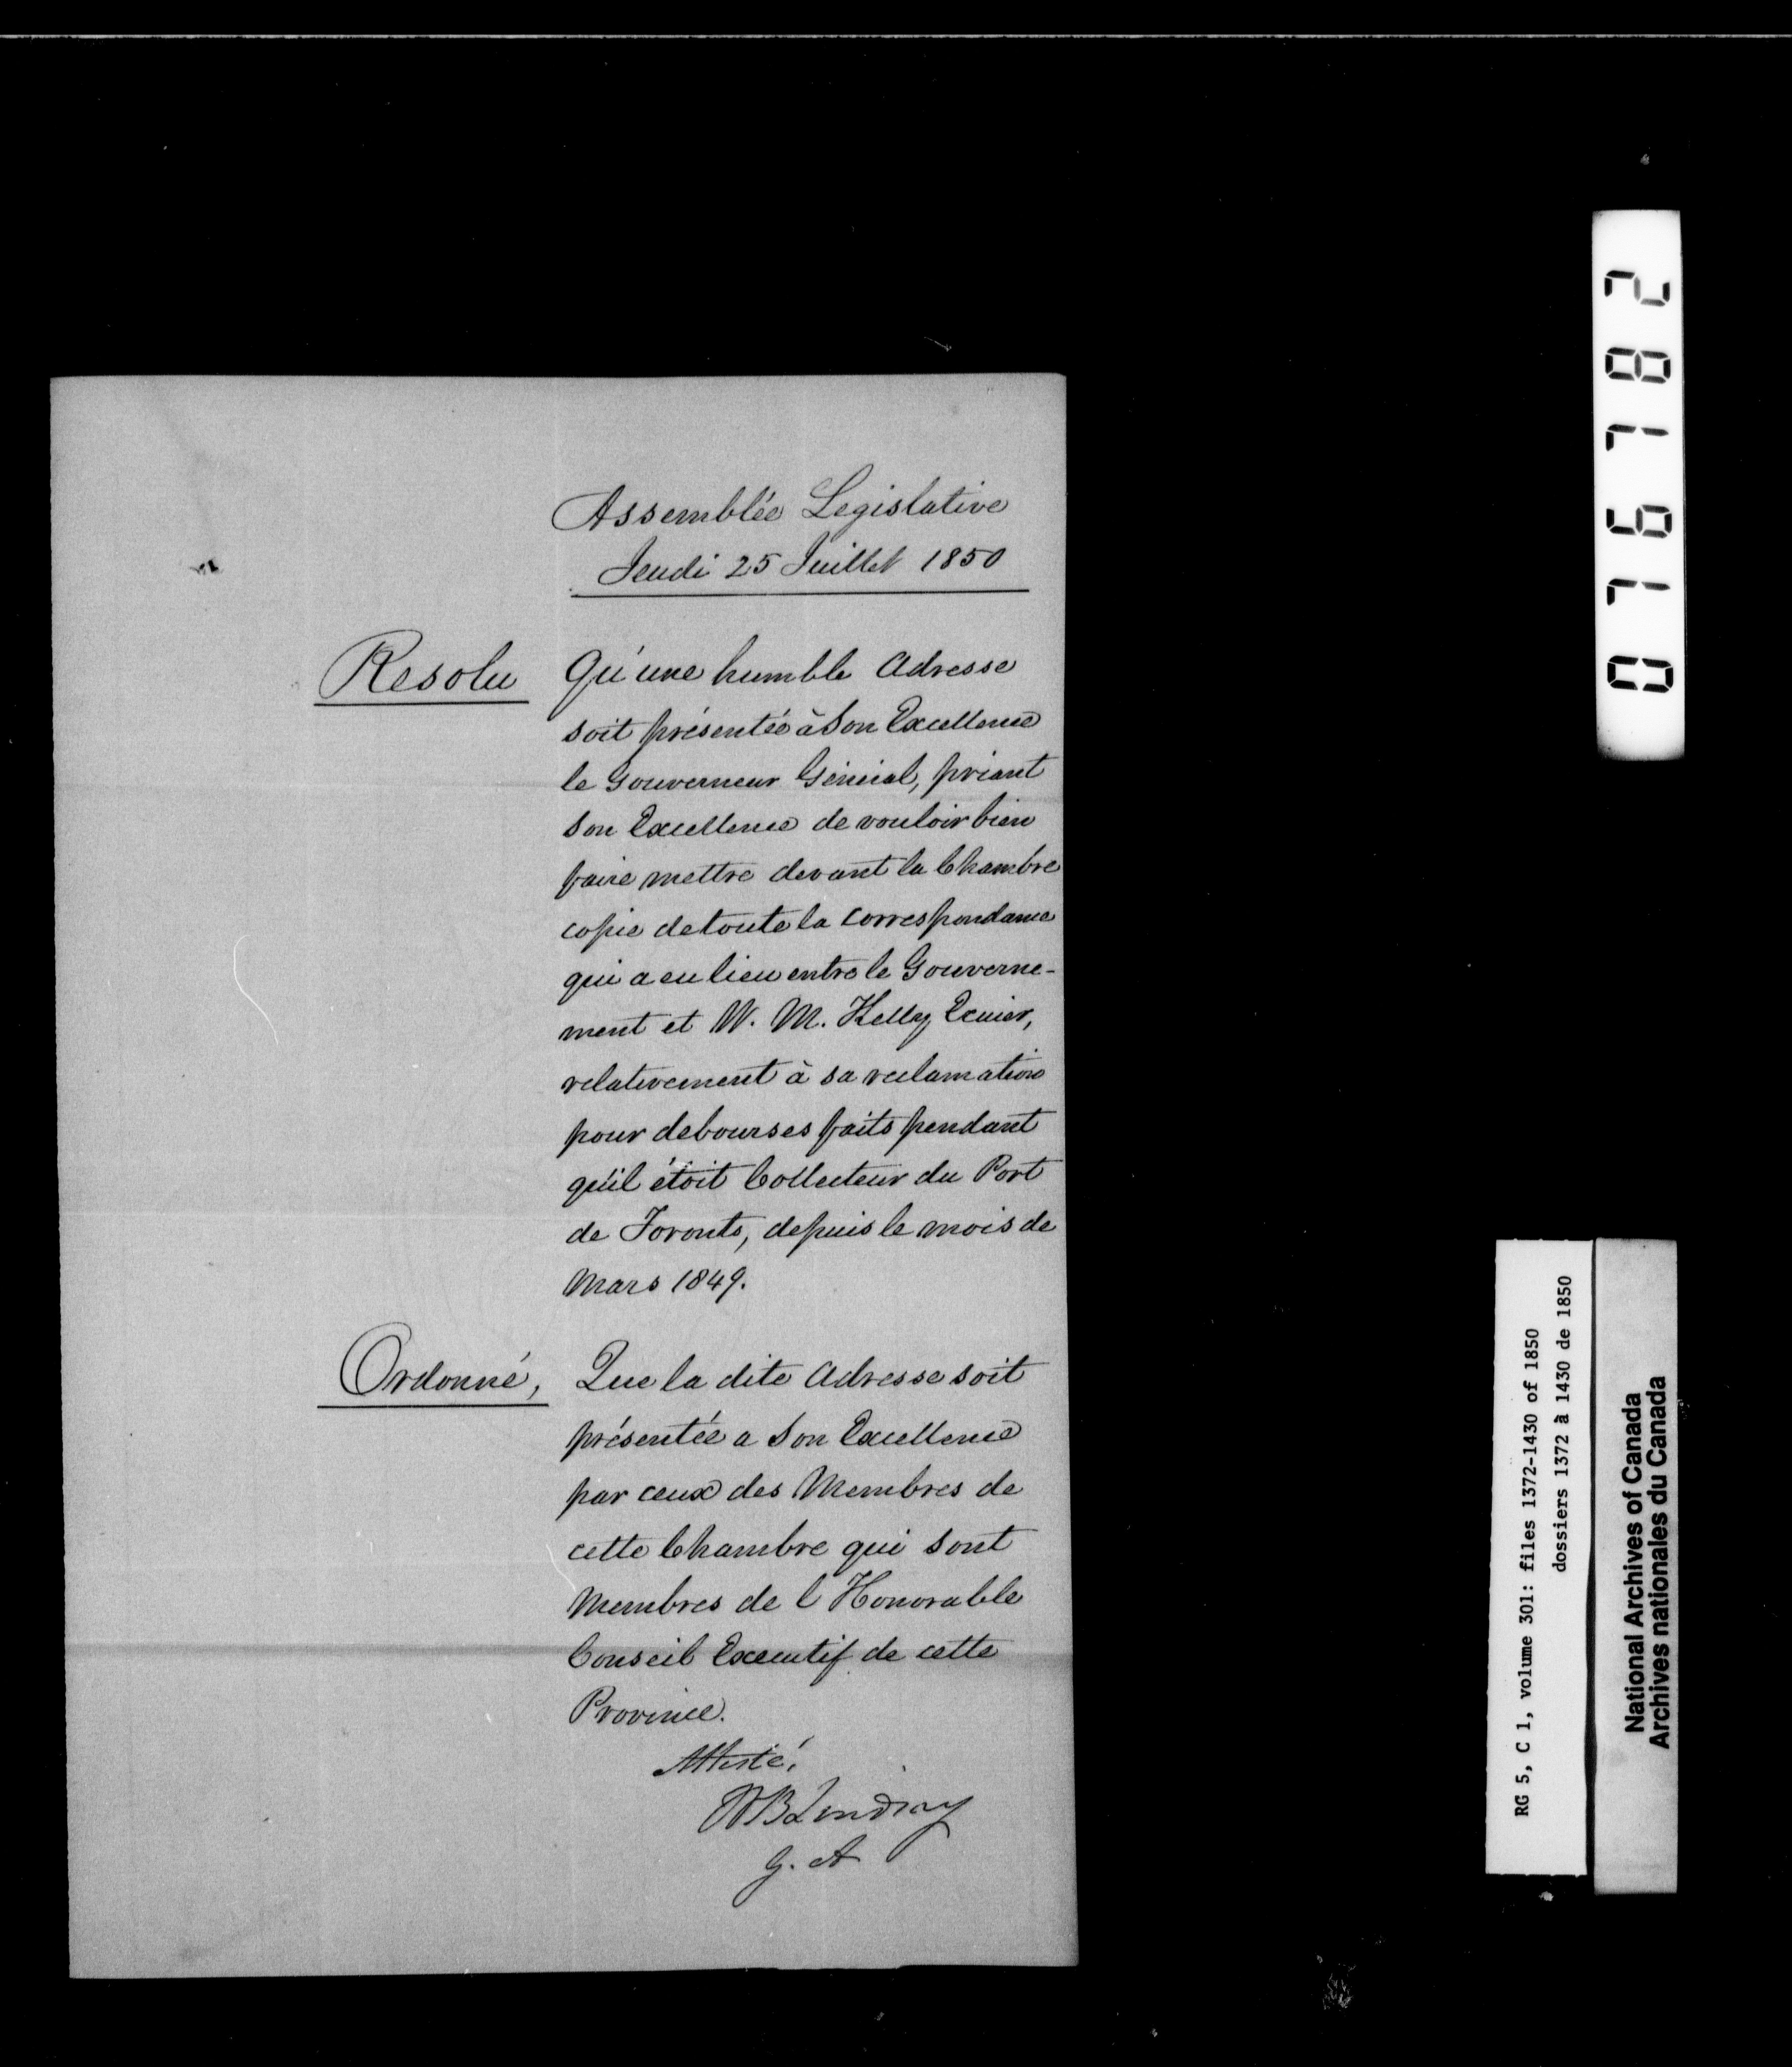 Assemblée Legislative
Jeudi 25 Juillet 1850
Resolu Qu'une humble Adresse
soit présentée à Son Excellence
le Gouverneur Géneral, priant
Son Excellence de vouloir bien
faire mettre devant la Chambre
copie de toute la correspondance
qui a eu lieu entre le Gouverne-
ment et W. M. Kelly Ecuier,
relativement à sa reclamation
pour debourses faits pendant
qu'il étoit Collecteur du Port
de Toronto, depuis le mois de
Mars 1849.
Ordonné, Que la dite Adresse soit
présentée a Son Excellence
par ceux des Membres de
cette Chambre qui sont
Membres de l'Honorable
Conseil Executif de cette
Province.
Attesté,
WB Lindsay
G. A
076782
RG 5, C 1, volume 301: files 1372-1430 of 1850
dossiers 1372 à 1430 de 1850
National Archives of Canada
Archives nationales du Canada